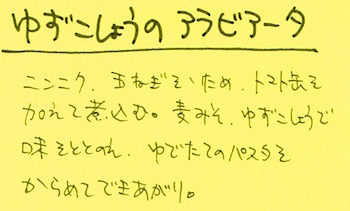 ゆずこしょうの アラビアータ
ニンニク、玉ねぎをいため、トマト缶を
加えて煮込む。麦みそ、ゆずこしょうで
味をととのえ、ゆでたてのパスタを
からめてできあがり。